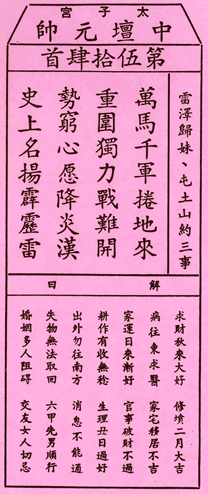 太子宮
中壇元帥
第伍拾肆首
雷澤歸妹、屯土山約三事
萬馬千軍捲地來
重圍獨力戰難開
勢窮心愿降炎漢
史上名揚霹靂雷
解曰
求財秋來大好 修墳二月大吉
病往東求醫 家宅移居不吉
家運日來漸好 官事破財不過
耕作有收無稔 生理丑日過好
出外勿往南方 消息不能通
失物無法取回 六甲先男順行
婚姻多人阻碍 交友女人切忌